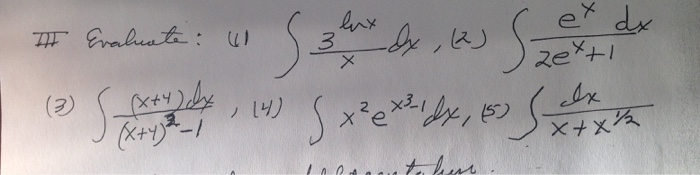 III Evaluate: (1) ∫ 3^{lnx}/x dx, (2) ∫ e^x dx / 2e^x+1
(3) ∫ (x+4)dx / (x+4)^2-1, (4) ∫ x^2 e^{x^3-1} dx, (5) ∫ dx / x+x^{1/2}